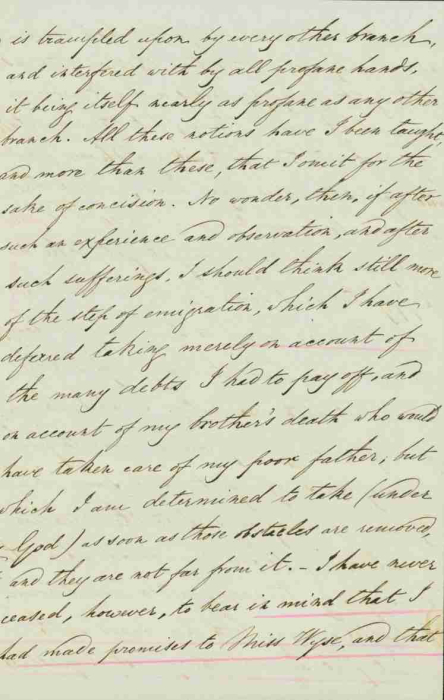 is trampled upon by every other branch,
and interfered with by all profane hands,
it being itself nearly as profane as any other
branch. All these notions have I been taught,
and more than these, that I omit for the
sake of concision. No wonder, then, if after
such an experience and observation, and after
such sufferings, I should think still more
of the step of emigration, which I have
deferred taking merely on account of
the many debts I had to pay off, and
on account of my brother's death who would
have taken care of my poor father; but
which I am determined to take (under
God) as soon as those obstacles are removed,
and they are not far from it. - I have never
ceased, however, to bear in mind that I
had made promises to Miss Wyse, and that